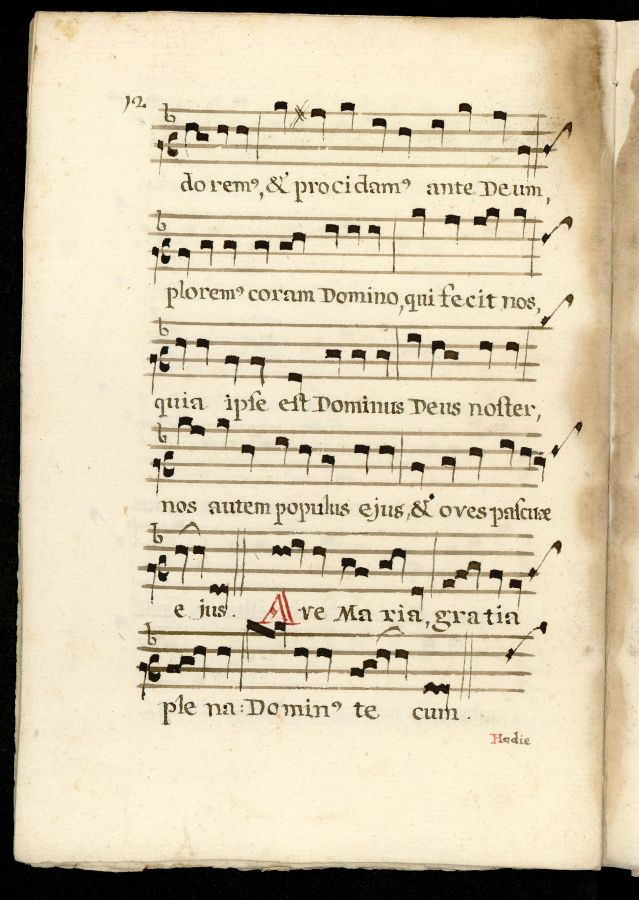 12.
do remꝰ, & procidamꝰ ante Deum,
ploremꝰ coram Domino, qui fecit nos,
quia ipſe eſt Dominus Deus noſter,
nos autem populus ejus, & oves paſcuæ
e jus. Ave Maria, gratia
ple na: Dominꝰ te cum.
Hodie